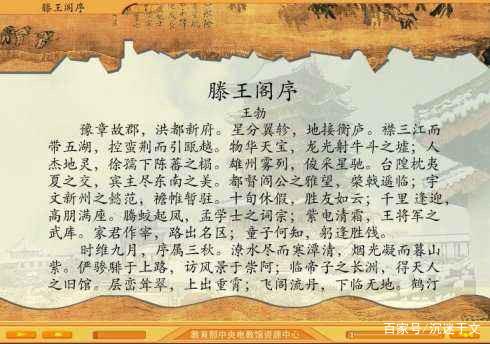 滕王阁序
滕王阁序
王勃
豫章故郡，洪都新府。星分翼轸，地接衡庐。襟三江而
带五湖，控蛮荆而引瓯越。物华天宝，龙光射牛斗之墟；人
杰地灵，徐孺下陈蕃之榻。雄州雾列，俊采星驰。台隍枕夷
夏之交，宾主尽东南之美。都督阎公之雅望，棨戟遥临；宇
文新州之懿范，襜帷暂驻。十旬休假，胜友如云；千里逢迎，
高朋满座。腾蛟起凤，孟学士之词宗；紫电清霜，王将军之
武库。家君作宰，路出名区；童子何知，躬逢胜饯。
时维九月，序属三秋。潦水尽而寒潭清，烟光凝而暮山
紫。俨骖騑于上路，访风景于崇阿；临帝子之长洲，得天人
之旧馆。层峦耸翠，上出重霄；飞阁流丹，下临无地。鹤汀
教育部中央电教馆资源中心
百家号/沉迷于文